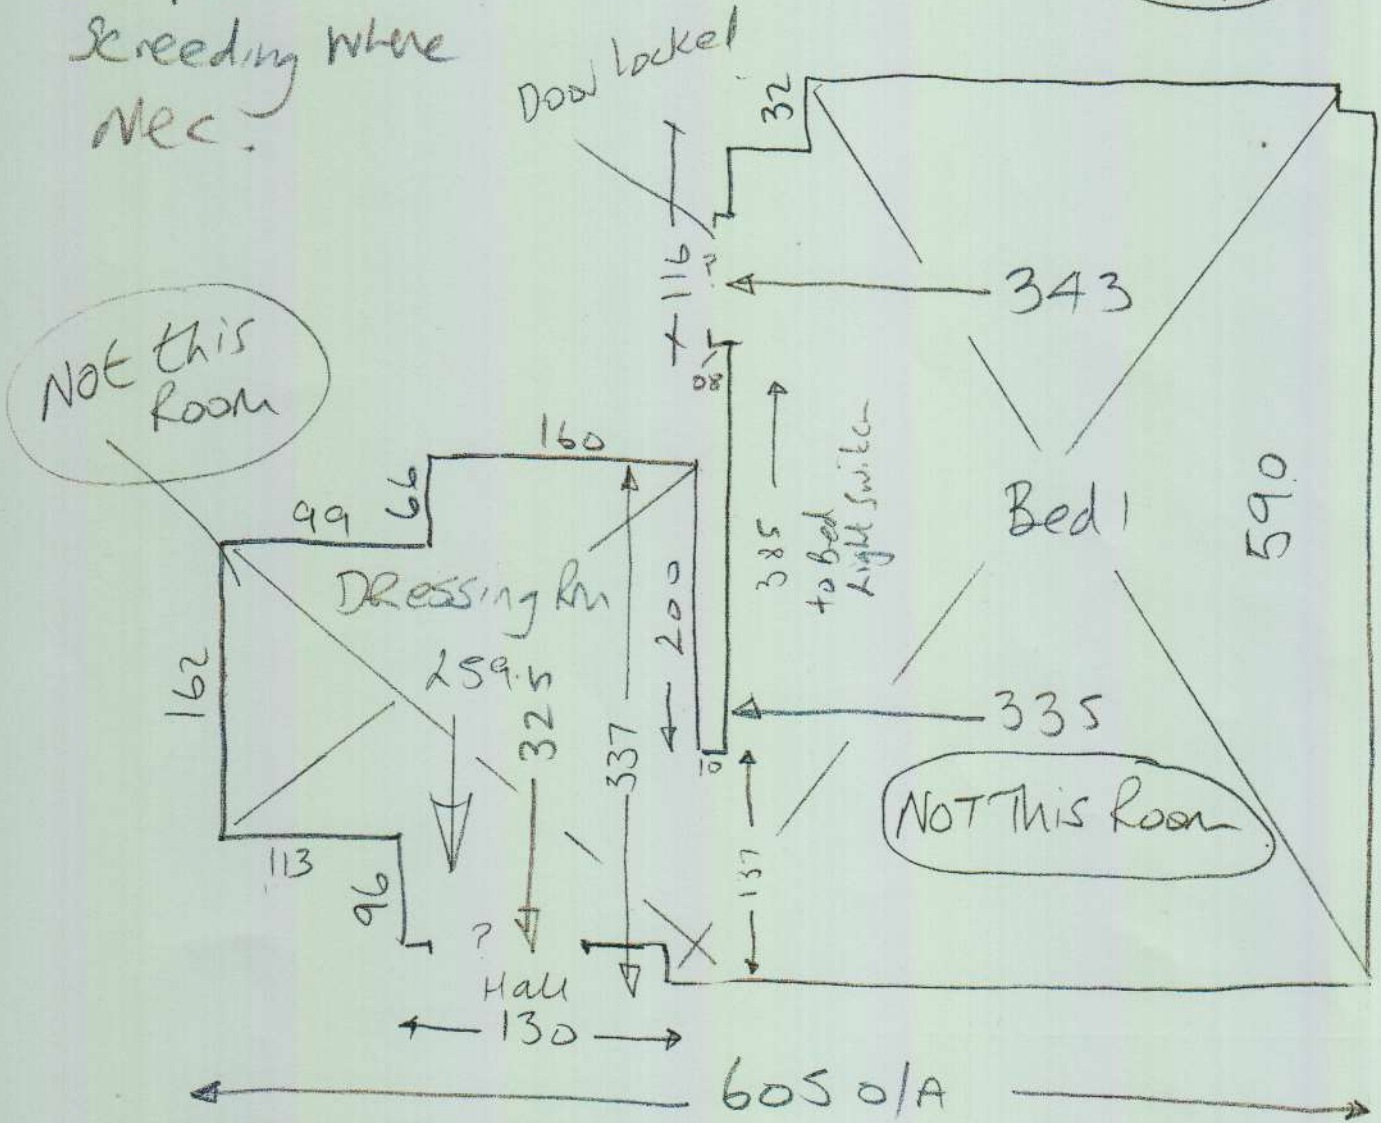 Screeding where
Nec.
Door Locked
32
116
?
343
08
Not this
Room
160
66
99
385
to Bed
Light Switch
Bed 1
590
Dressing Rm
200
162
259.5
325
337
335
10
NOT This Room
137
113
96
?
Hall
130
605 O/A